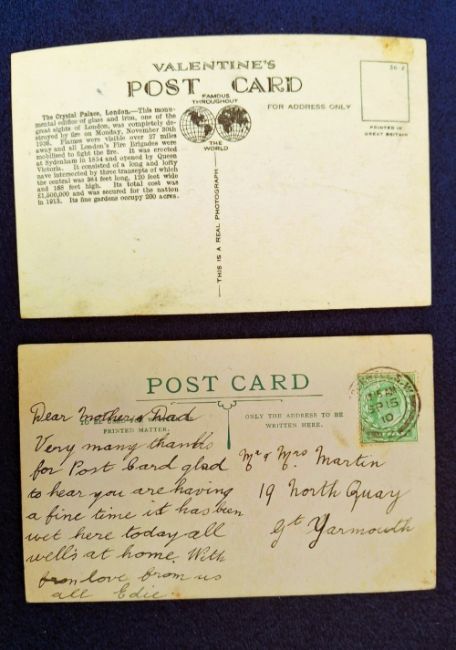 VALENTINE'S
POST CARD
FAMOUS
THROUGHOUT
THE
WORLD
FOR ADDRESS ONLY
36-Z
PRINTED IN
GREAT BRITAIN
The Crystal Palace, London.—This monu-
mental edifice of glass and iron, one of the
great sights of London, was completely de-
stroyed by fire on Monday, November 30th
1936. Flames were visible over 27 miles
away and all London's Fire Brigades were
mobilised to fight the fire. It was erected
at Sydenham in 1854 and opened by Queen
Victoria. It consisted of a long and lofty
nave intersected by three transepts of which
the central was 384 feet long, 120 feet wide
and 168 feet high. Its total cost was
£1,500,000 and was secured for the nation
in 1913. Its fine gardens occupy 200 acres.
THIS IS A REAL PHOTOGRAPH
POST CARD
PRINTED MATTER.
ONLY THE ADDRESS TO BE
WRITTEN HERE.
SP 15
10
Dear Mother & Dad
Very many thanks
for Post Card glad
to hear you are having
a fine time it has been
wet here today all
well's at home. With
love from us
all Edie
Mr & Mrs Martin
19 North Quay
Gt Yarmouth